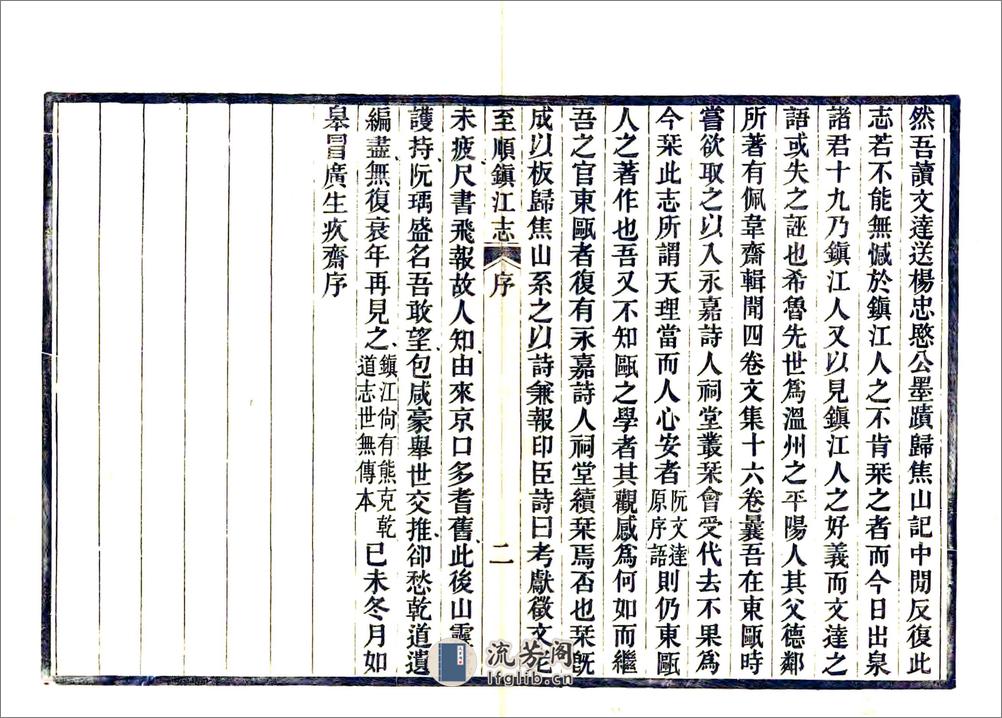 然吾讀文達送楊忠愍公墨蹟歸焦山記中閒反復此
志若不能無憾於鎭江人之不肯栞之者而今日出泉
諸君十九乃鎭江人又以見鎭江人之好義而文達之
語或失之誣也希魯先世爲溫州之平陽人其父德鄰
所著有佩韋齋輯聞四卷文集十六卷曩吾在東甌時
嘗欲取之以入永嘉詩人祠堂叢栞會受代去不果爲
今栞此志所謂天理當而人心安者阮文達原序語則仍東甌
人之著作也吾又不知甌之學者其觀感爲何如而繼
吾之官東甌者復有永嘉詩人祠堂續栞焉否也栞旣
成以板歸焦山系之以詩兼報印臣詩曰考獻徵文
至順鎭江志 序 二
未疲尺書飛報故人知、由來京口多耆舊、此後山靈
護持、阮瑀盛名吾敢望、包咸豪舉世交推、卻愁乾道遺
編盡、無復衰年再見之、鎭江尙有熊克乾道志世無傳本已未冬月如
臯冒廣生疚齋序
流芳阁
lfglib.cn